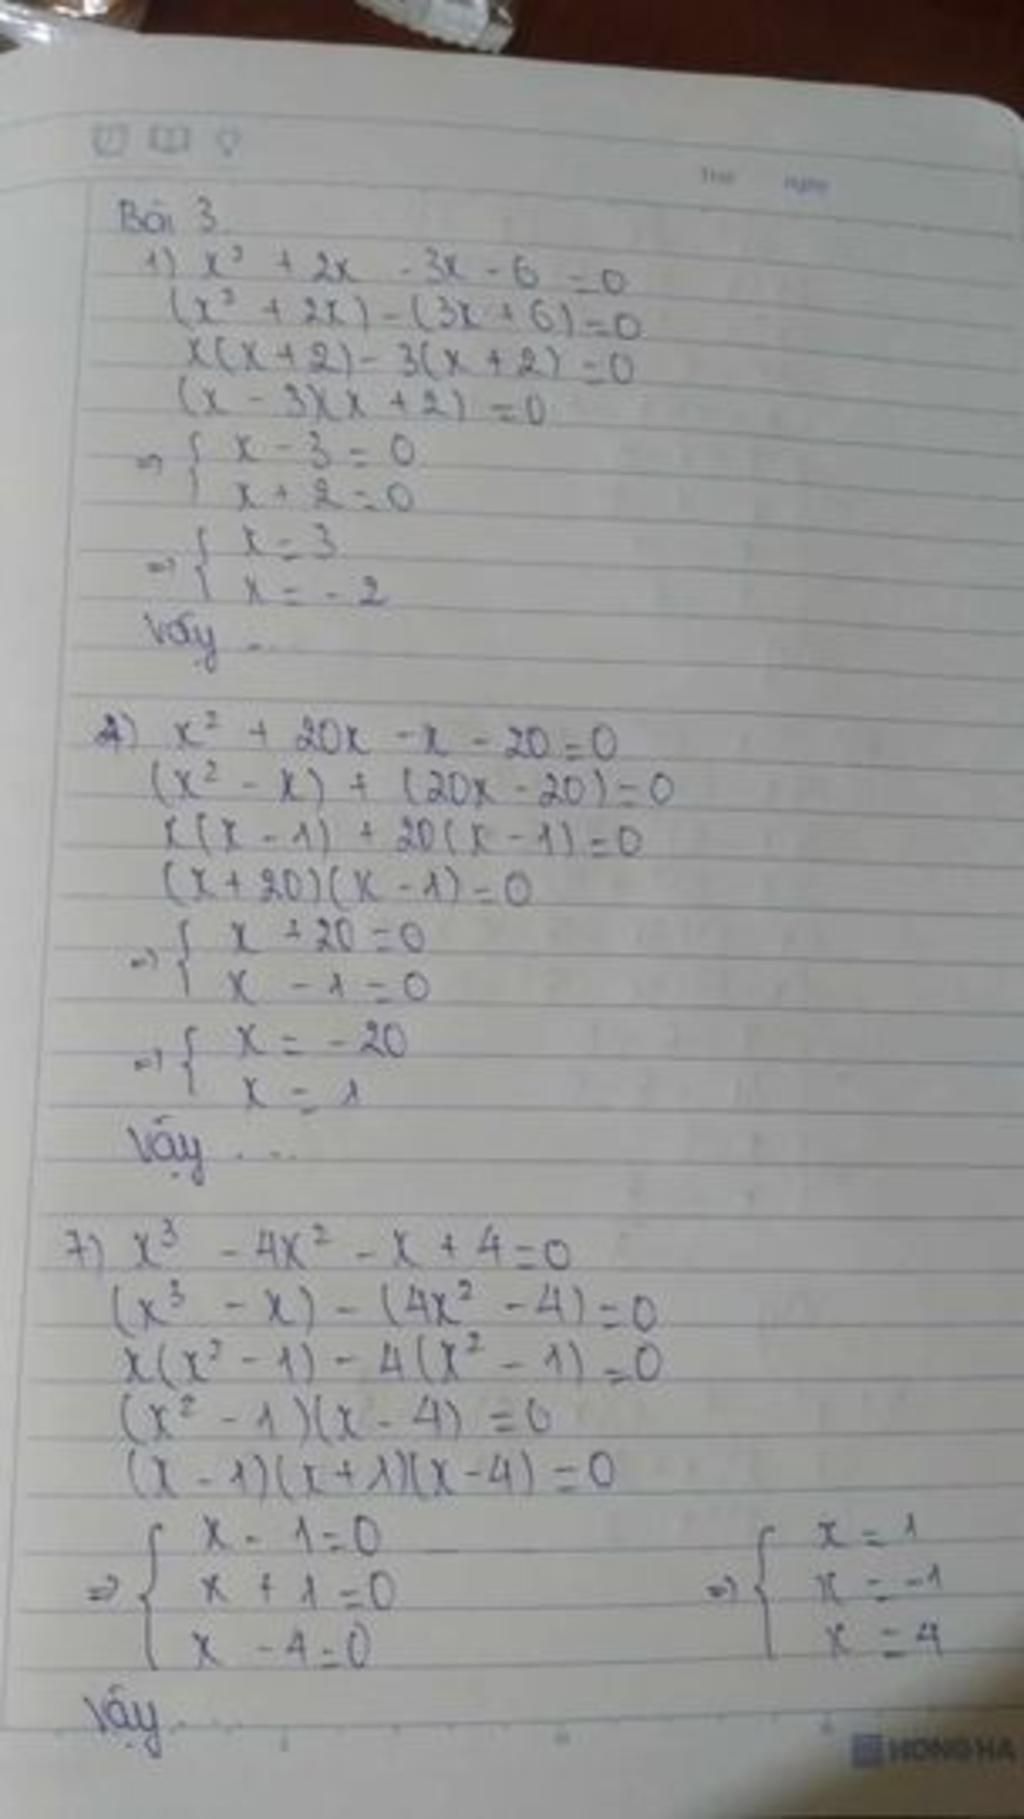 Thứ ngày
Bài 3
1) x² + 2x - 3x - 6 = 0
(x² + 2x) - (3x + 6) = 0
x(x + 2) - 3(x + 2) = 0
(x - 3)(x + 2) = 0
=> { x - 3 = 0
x + 2 = 0
=> { x = 3
x = - 2
Vậy ...
2) x² + 20x - x - 20 = 0
(x² - x) + (20x - 20) = 0
x(x - 1) + 20(x - 1) = 0
(x + 20)(x - 1) = 0
=> { x + 20 = 0
x - 1 = 0
=> { x = - 20
x = 1
Vậy ...
7) x³ - 4x² - x + 4 = 0
(x³ - x) - (4x² - 4) = 0
x(x² - 1) - 4(x² - 1) = 0
(x² - 1)(x - 4) = 0
(x - 1)(x + 1)(x - 4) = 0
x - 1 = 0 x = 1
=> { x + 1 = 0 => { x = -1
x - 4 = 0 x = 4
Vậy ...
HONG HA